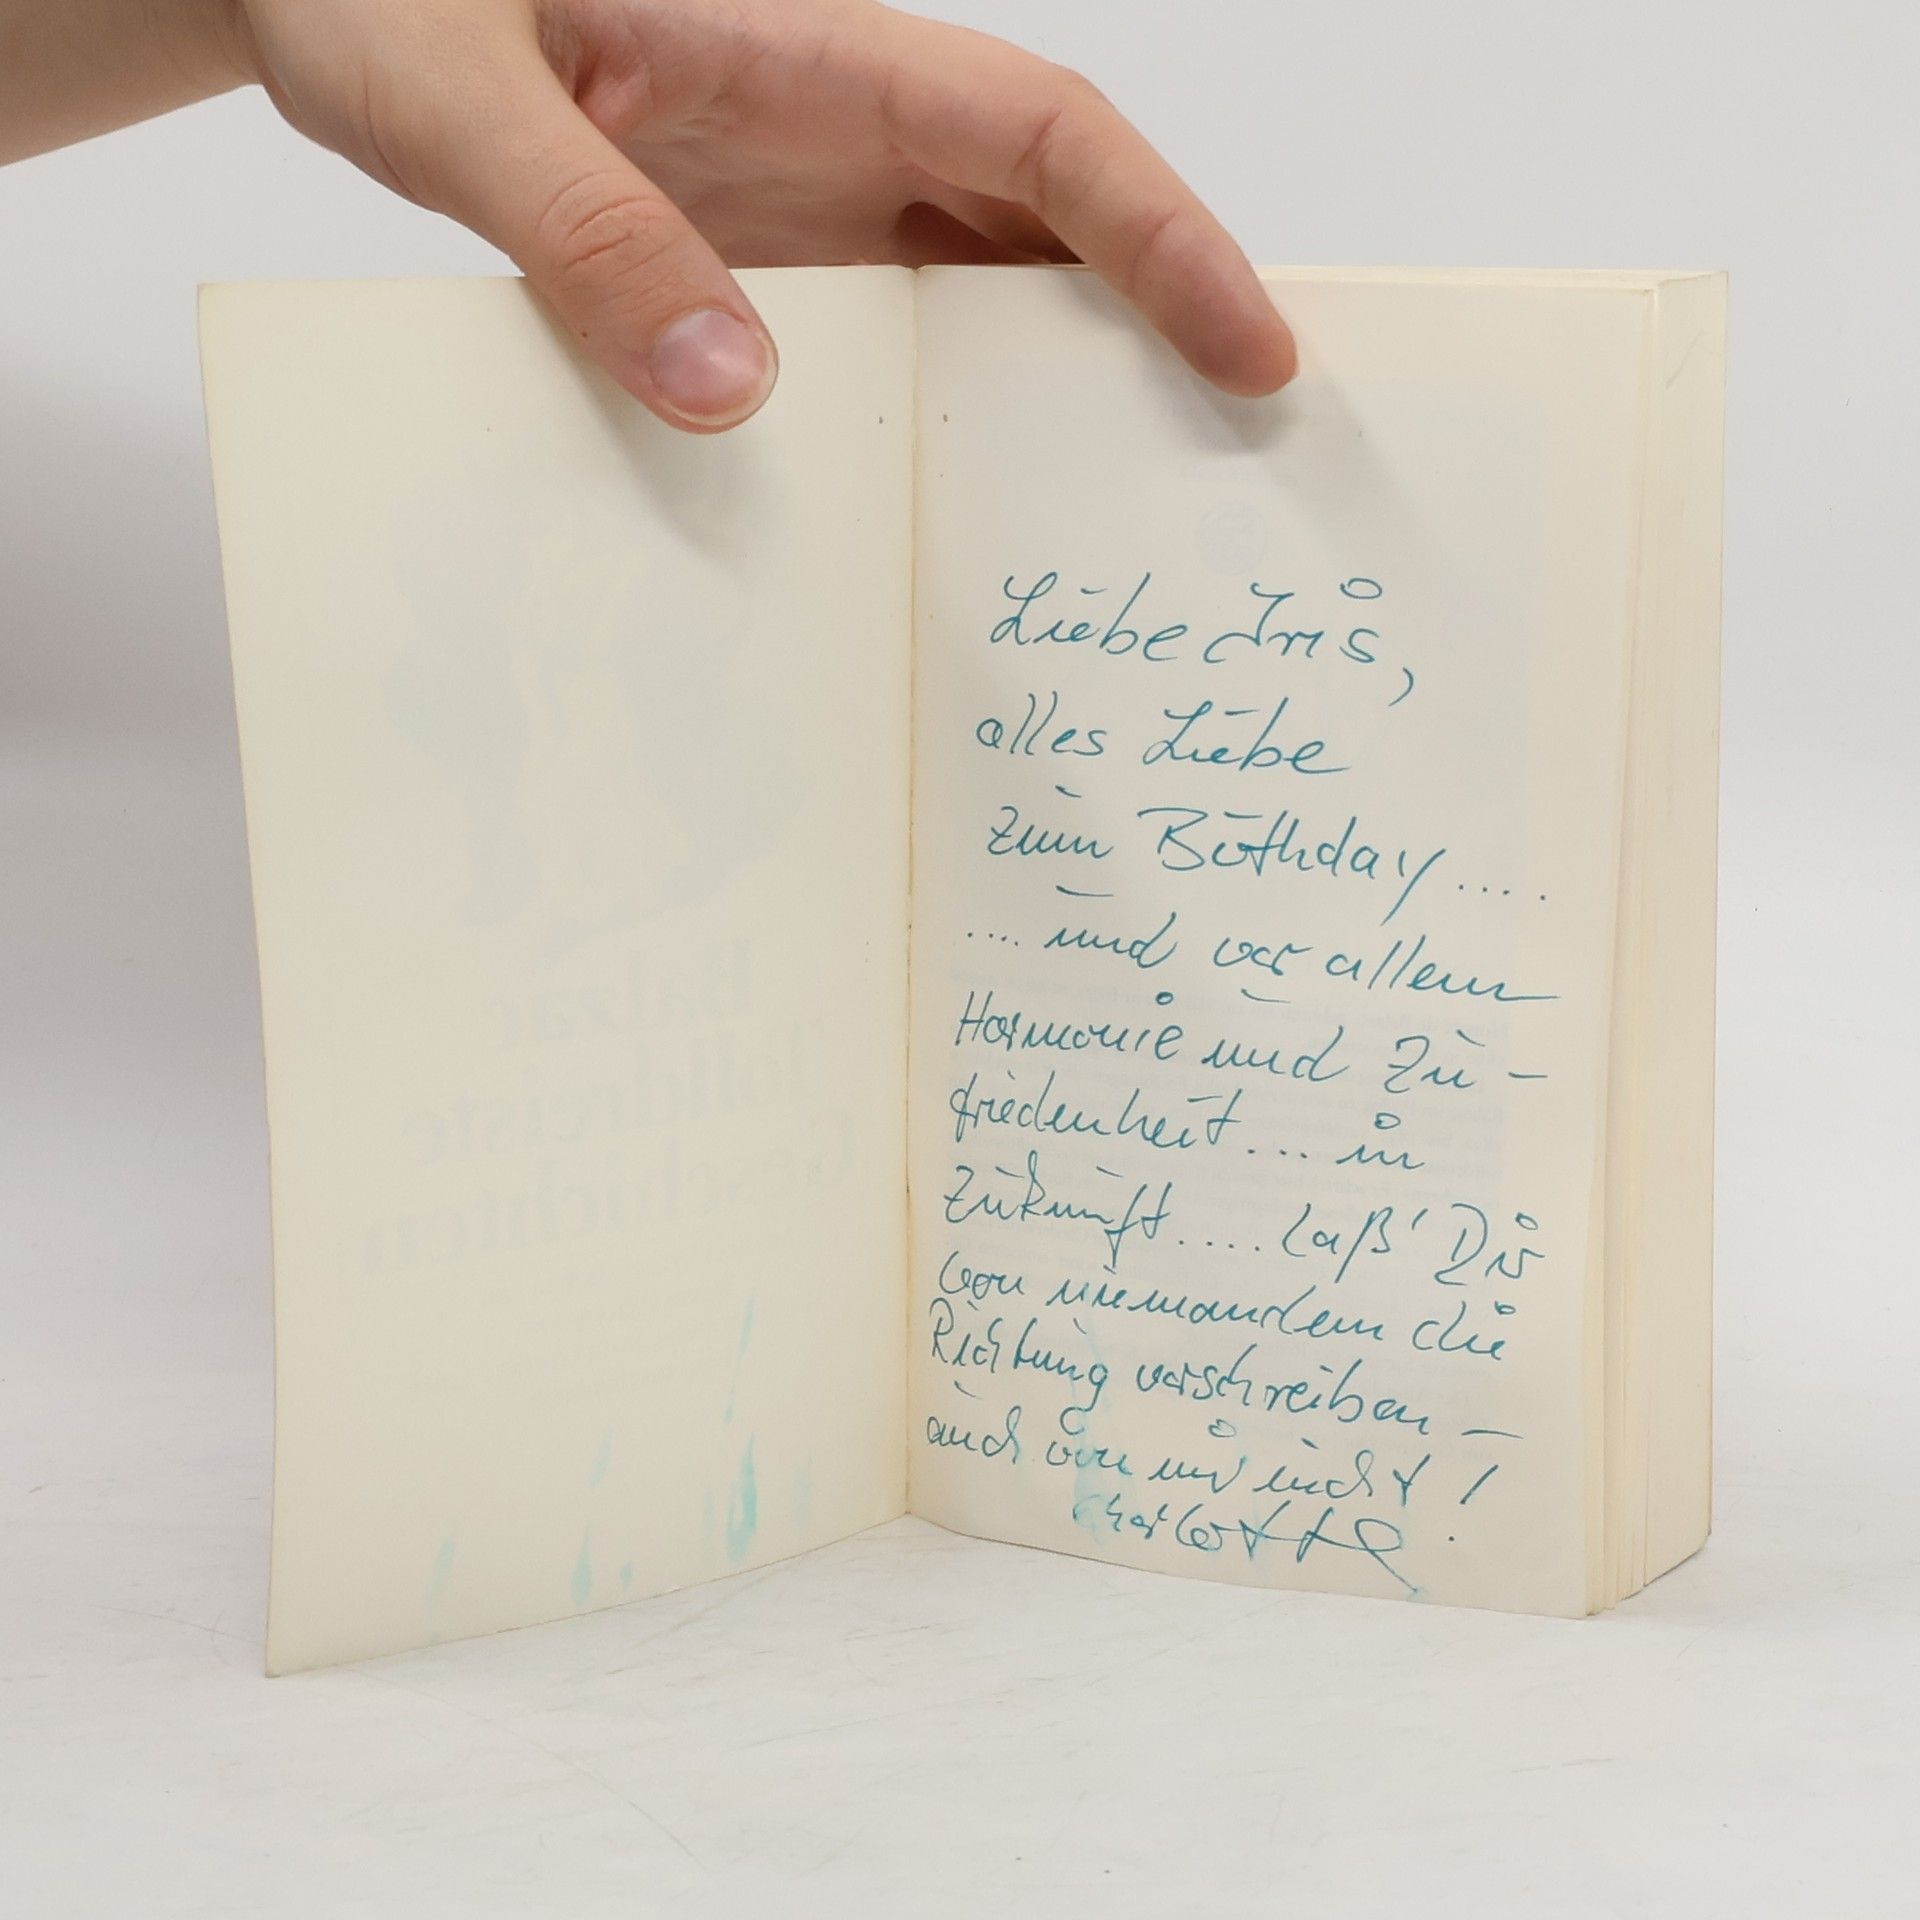 Liebe Iris,
alles Liebe
zum Birthday....
.... und vor allem
Harmonie und Zu-
friedenheit... in
Zukunft.... Laß' Dir
von niemandem die
Richtung vorschreiben –
auch von mir nicht!
Charlotte